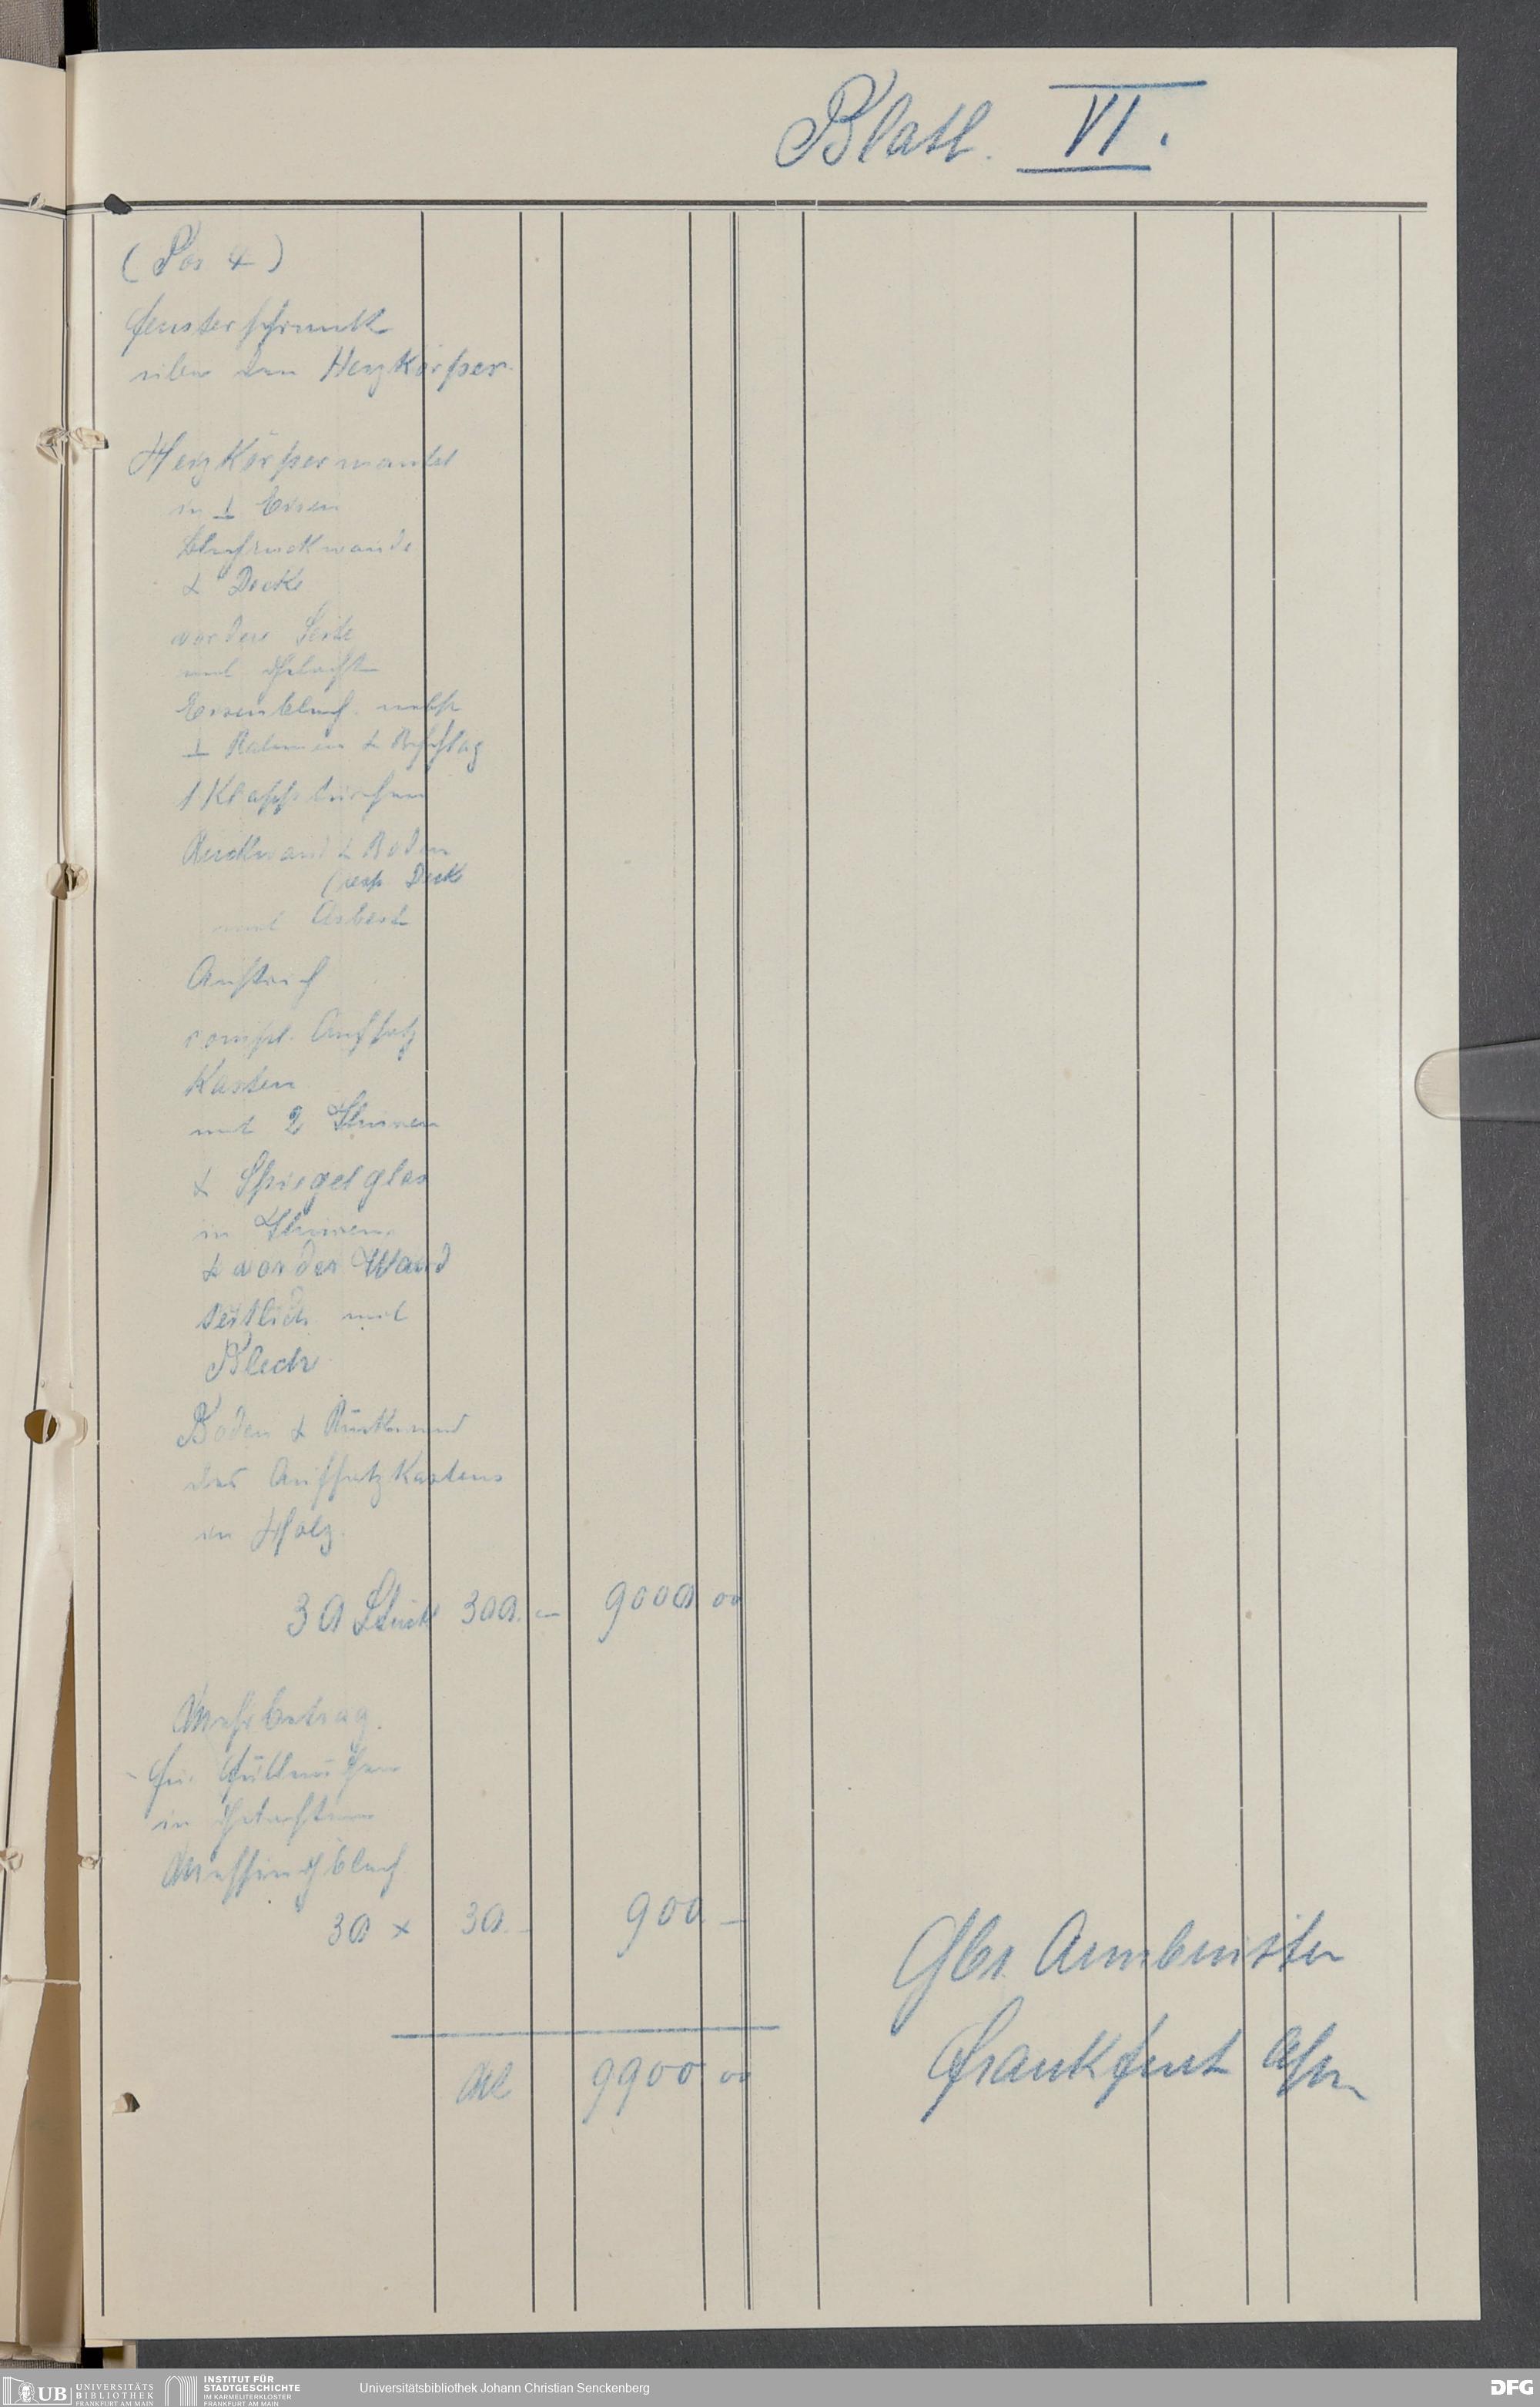 Blatt. VI.
(Pos 4)
Fensterschrank
über den Heizkörper.
Heizkörpermantel
in ⊥ Eisen
Blechrückwände
& Decke
vordere Seite
mit gelocht
Eisenblech nebst
⊥ Rahmen & Beschlag
1 Klapptürchen
Rückwand & Boden
(resp Deck
mit Asbest
Anstrich
compl. Aufsatz
Kasten
mit 2 Thüren
& Spiegelglas
in Thüren
& vorder Wand
seitlich mit
Blech
Boden & Rückwand
des Aufsatzkastens
in Holz.
30 Stück 300.– 9000 00
Mehrbetrag.
für Füllungen
in gelochtem
Messingblech
30 x 30.– 900 –
M 9900 00
Gbr. Armbrüster
Frankfurt a/m
UB UNIVERSITÄTS
BIBLIOTHEK
FRANKFURT AM MAIN
INSTITUT FÜR
STADTGESCHICHTE
IM KARMELITERKLOSTER
FRANKFURT AM MAIN
Universitätsbibliothek Johann Christian Senckenberg
DFG